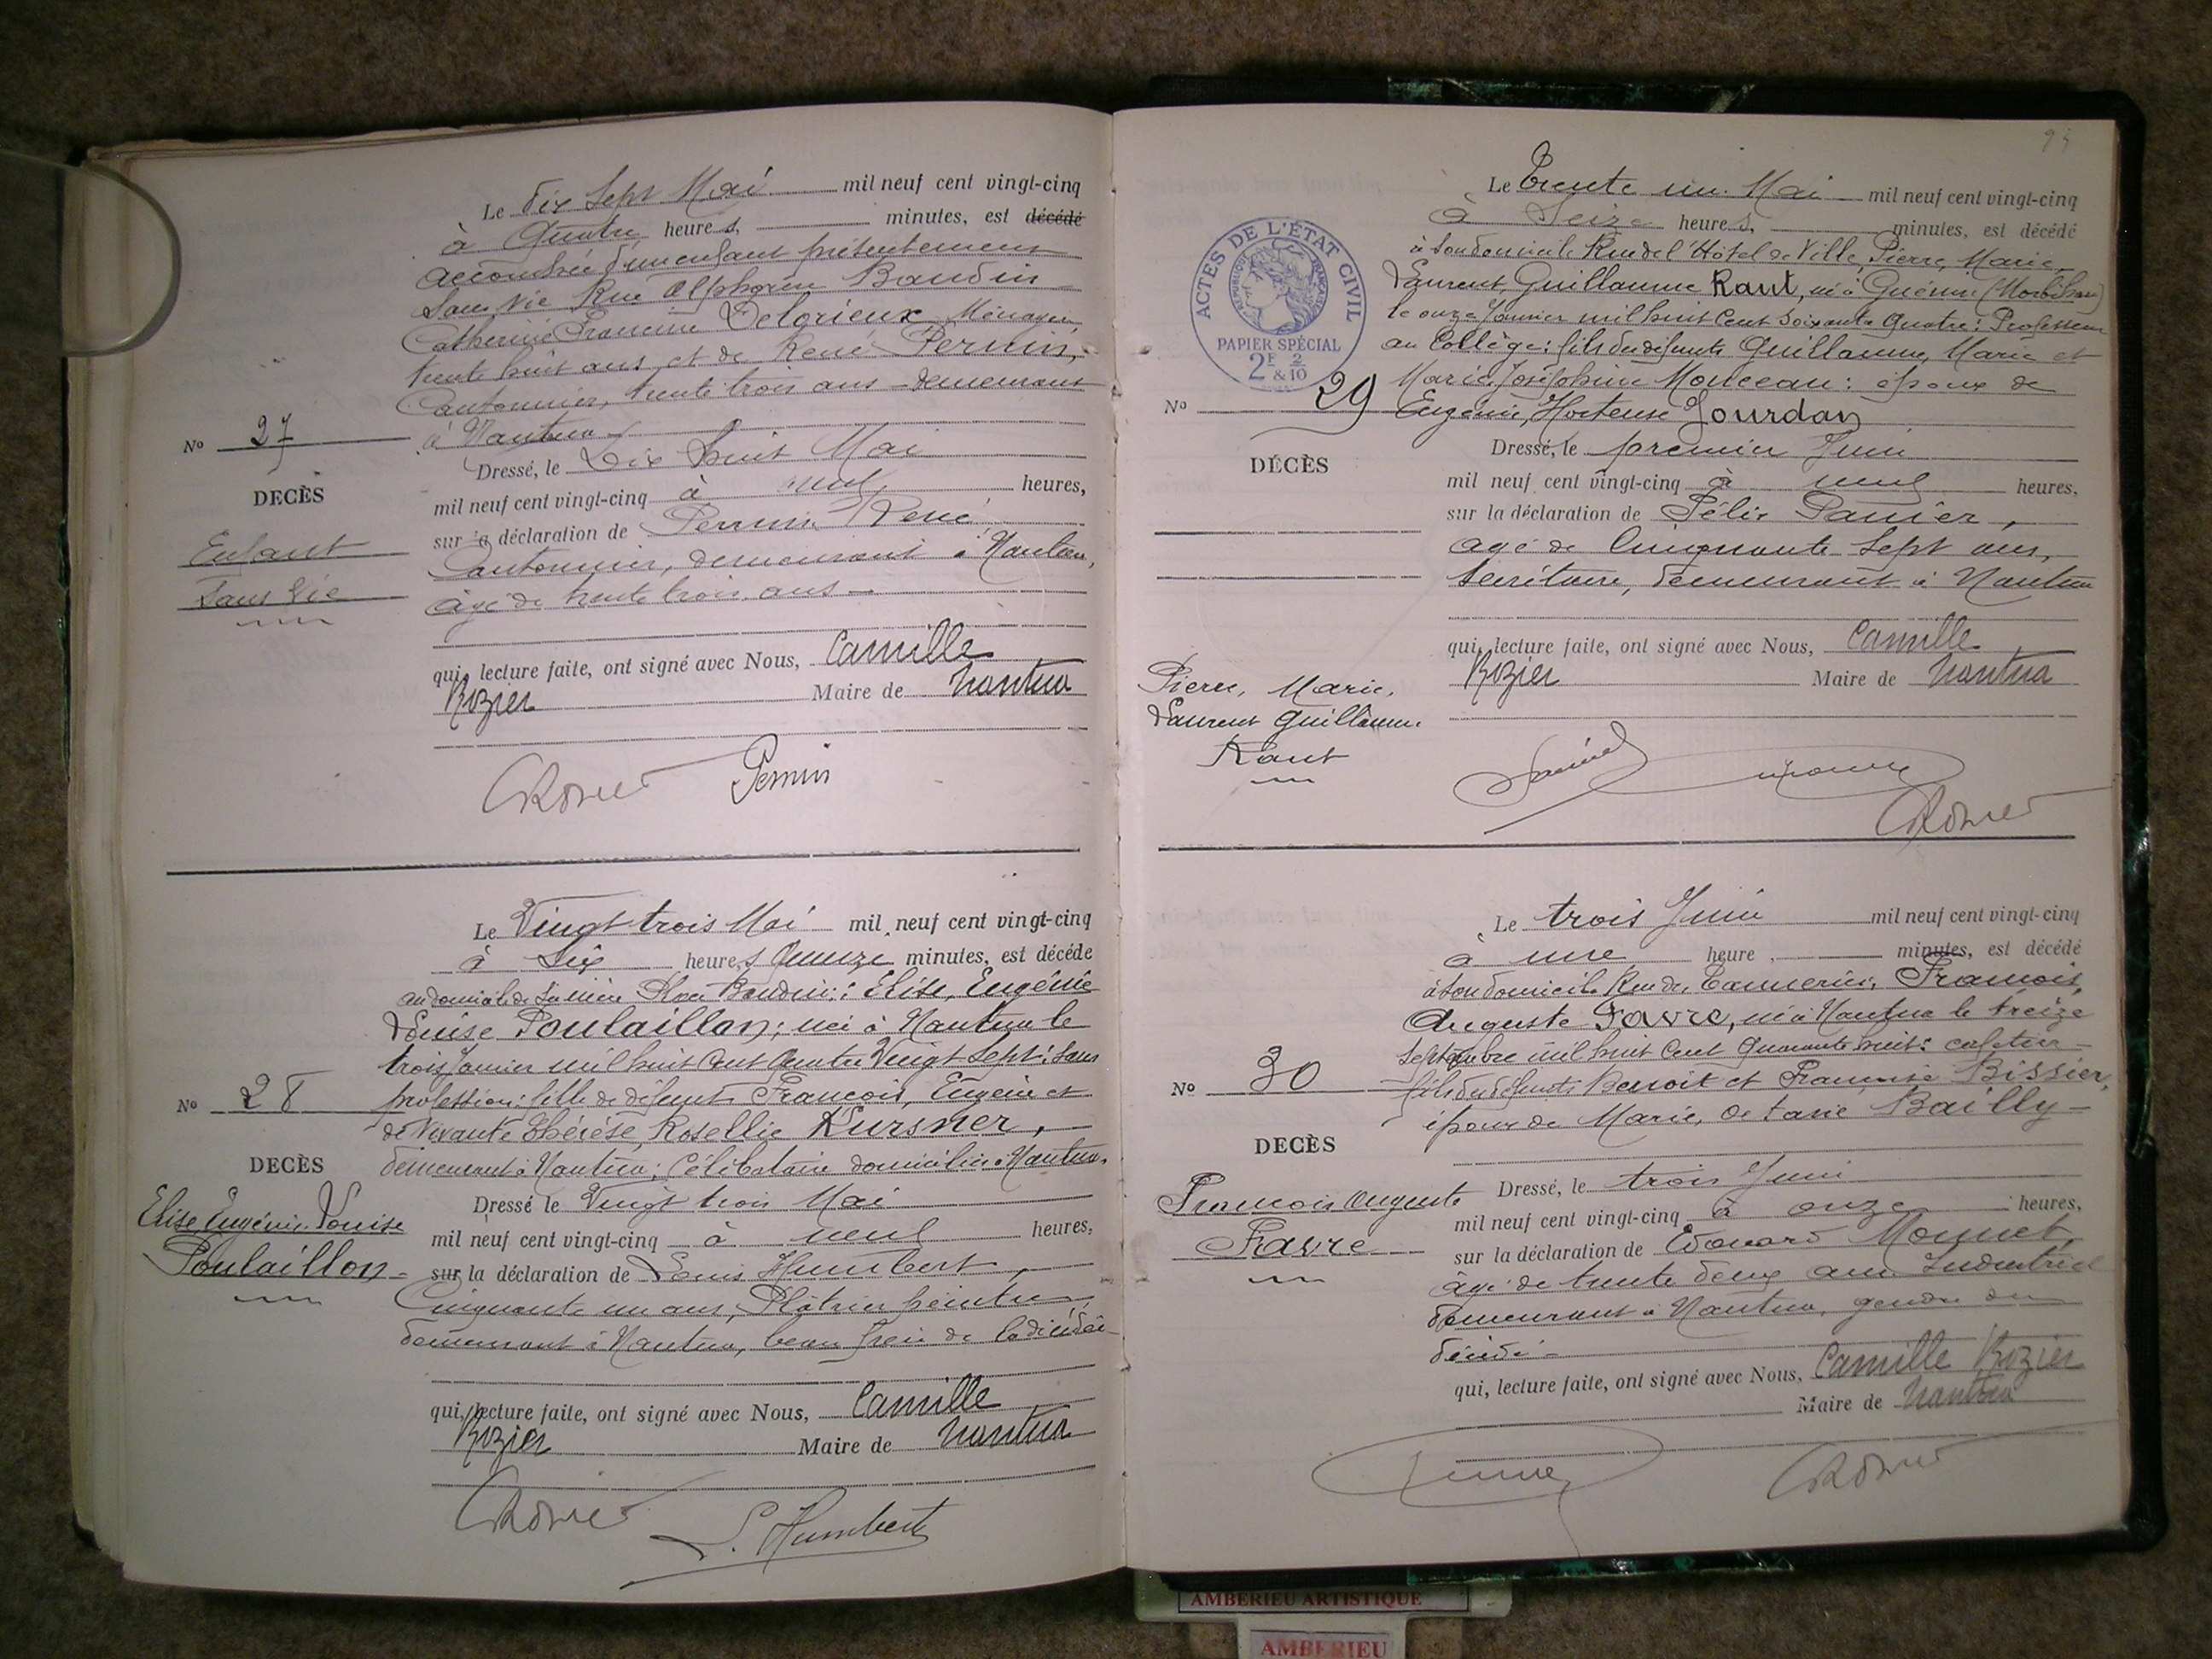 Le dix Sept Mai mil neuf cent vingt-cinq
à Quatre heures, minutes, est décédé
accouchée d'un enfant présentement
Sans Vie Rue Alphonse Baudin
Catherine Francine Delorieux, Ménagère,
trente huit ans, et de René Perrin,
Cantonnier, trente trois ans demeurant
à Nantua
No 27
DECÈS
Enfant
Sans Vie
Dressé, le Dix huit Mai
mil neuf cent vingt-cinq à neuf heures,
sur la déclaration de Perrin René
Cantonnier, demeurant à Nantua,
âgé de trente trois ans
qui, lecture faite, ont signé avec Nous, Camille
Rozier Maire de Nantua
CRozier Perrin
Le Vingt trois Mai mil neuf cent vingt-cinq
à Six heures Quinze minutes, est décédé
au domicile de sa mère Place Baudin: Elise, Eugénie
Louise Poulaillon; née à Nantua le
trois Janvier mil huit Cent Quatre Vingt Sept: Sans
profession: fille de défunt François, Eugène et
de Vivante Thérèse, Rosellie Kursner,
demeurant à Nantua; Célibataire domiciliée à Nantua.
No 28
DECÈS
Elise Eugénie Louise
Poulaillon
Dressé le Vingt trois Mai
mil neuf cent vingt-cinq à neuf heures,
sur la déclaration de Louis Humbert,
Cinquante un ans, Plâtrier peintre
demeurant à Nantua, beau frère de la décédée
qui, lecture faite, ont signé avec Nous, Camille
Rozier Maire de Nantua
CRozier
L. Humbert
Le Trente un Mai mil neuf cent vingt-cinq
à Seize heures, minutes, est décédé
à son domicile Rue de l'Hôtel de Ville, Pierre, Marie,
Laurent, Guillaume Raut, né à Guénin (Morbihan)
le onze Janvier mil huit Cent Soixante Quatre: Professeur
au Collège: fils de défunts Guillaume, Marie et
Marie Joséphine Monceau: époux de
Eugénie, Hortense Jourdan
ACTES DE L'ÉTAT CIVIL
RÉPUBLIQUE FRANÇAISE
PAPIER SPÉCIAL
2F & 2/10
No 29
DÉCÈS
Pierre, Marie,
Laurent Guillaume
Raut
Dressé, le premier Juin
mil neuf cent vingt-cinq à neuf heures,
sur la déclaration de Félix Panier,
agé de Cinquante Sept ans,
Secrétaire, demeurant à Nantua
qui, lecture faite, ont signé avec Nous, Camille
Rozier Maire de Nantua
CRozier
Le trois Juin mil neuf cent vingt-cinq
à une heure, minutes, est décédé
à son domicile Rue des Tanneries, François,
Auguste Favre, né à Nantua le treize
Septembre mil huit Cent Quarante huit: cafetier
fils de défunts Benoit et Françoise Bissier,
époux de Marie, Octavie Bailly
No 30
DECÈS
François Auguste
Favre
Dressé, le trois Juin
mil neuf cent vingt-cinq à onze heures,
sur la déclaration de Edouard Monnet,
âgé de trente deux ans Industriel
demeurant à Nantua, gendre du
décédé
qui, lecture faite, ont signé avec Nous, Camille Rozier
Maire de Nantua
CRozier
AMBERIEU ARTISTIQUE
AMBERIEU